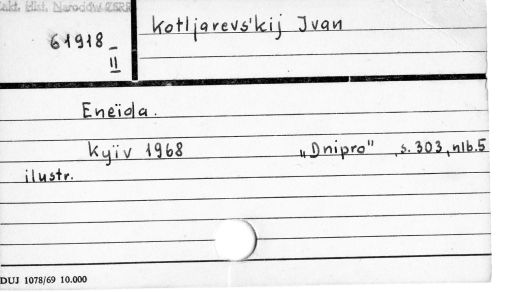 Zakł. Hist. Narodów ZSRR
61918
II
Kotljarevs'kij Ivan
Eneïda.
Kyïv 1968 „Dnipro" , s. 303, nlb. 5
ilustr.
DUJ 1078/69 10.000